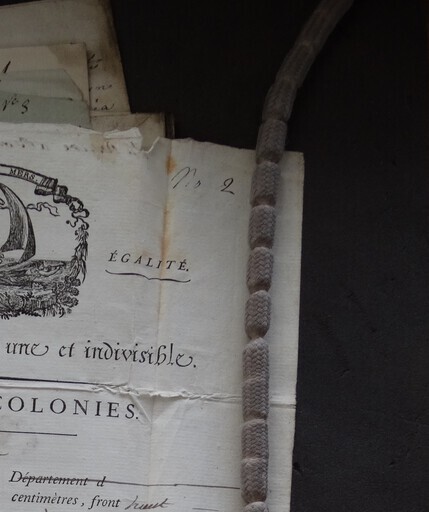 No 2
MERS.
ÉGALITÉ.
une et indivisible.
COLONIES.
Département d
centimètres, front haut